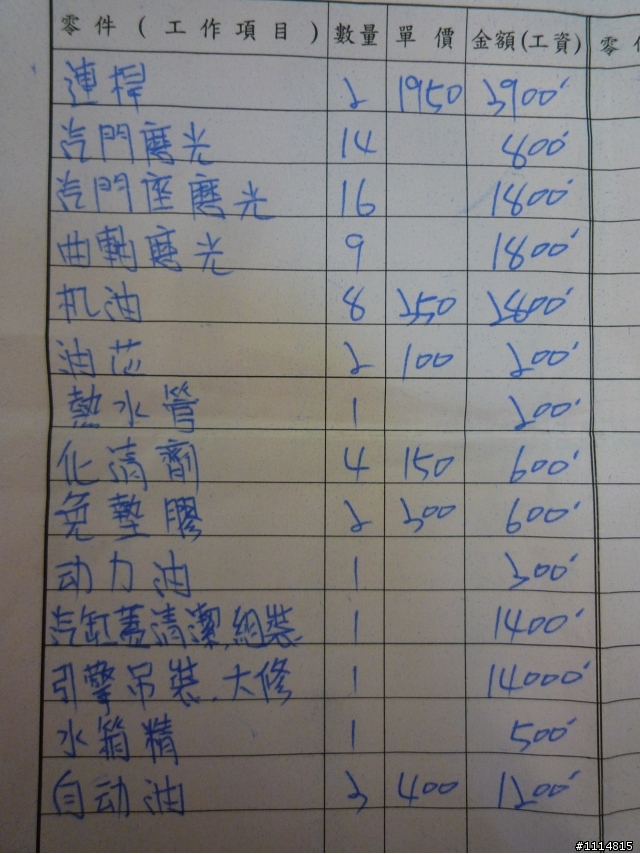 零 件 ( 工 作 項 目 ) 數量 單 價 金額(工資) 零
連桿 2 1950 3900
汽門磨光 14 800
汽門座磨光 16 1800
曲軸磨光 9 1800
机油 8 350 2800
油芯 2 100 200
熱水管 1 200
化清劑 4 150 600
免墊膠 2 300 600
动力油 1 300
汽缸蓋清潔.組裝 1 1400
引擎吊裝.大修 1 14000
水箱精 1 500
自动油 3 400 1200
#1114815